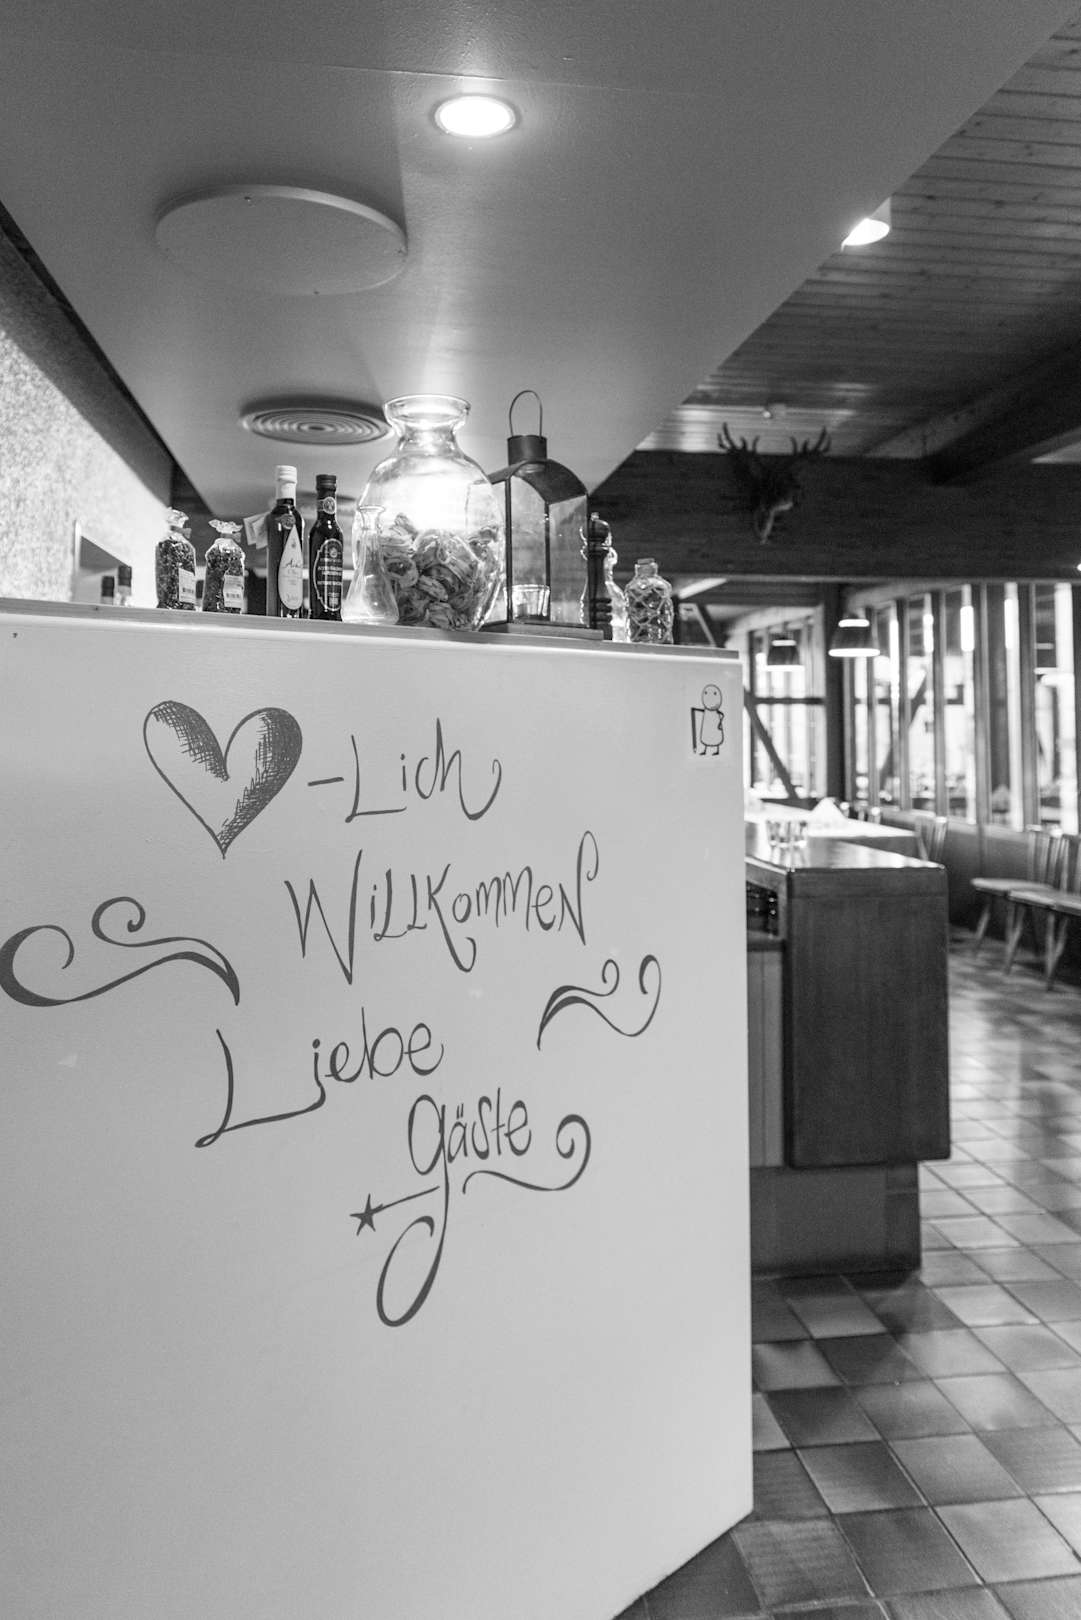 ♥-Lich
Willkommen
Liebe
gäste